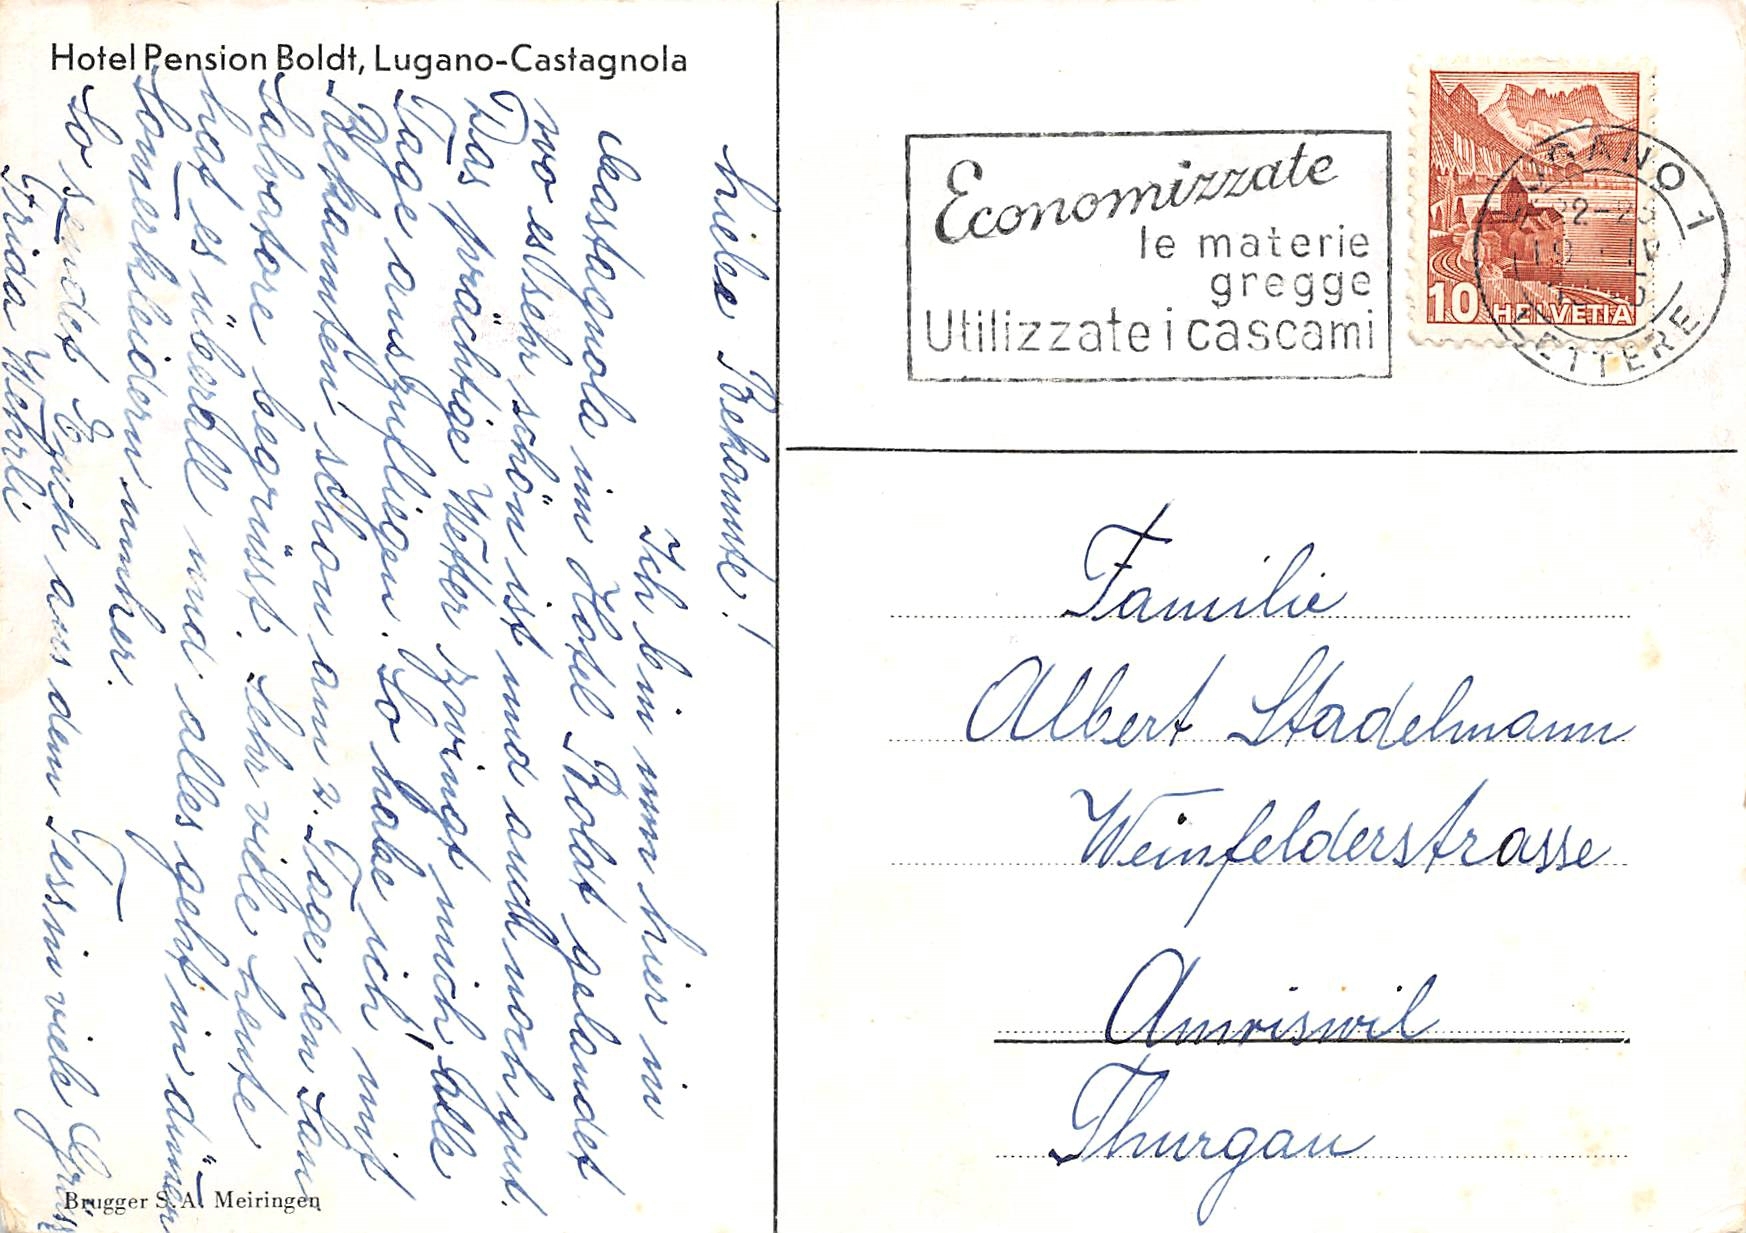 Hotel Pension Boldt, Lugano-Castagnola
Liebe Bekannte!
Ich bin nun hier in
Castagnola im Hotel Boldt gelandet
wo es sehr schön ist und auch noch gut.
Das prächtige Wetter zwingt mich, alle
Tage auszufliegen. So habe ich mit
Bekannten schon am 2. Tage den San
Salvatore begrüsst. Sehr viele Leute
hat es überall und alles geht in dünnen
Somerkleidern umher.
So sendet Euch aus dem Tessin viele Grüsse
Frida Wehrli
Brugger S. A. Meiringen
Economizzate
le materie
gregge
Utilizzate i cascami
LUGANO 1
LETTERE
10 HELVETIA
Familie
Albert Stadelmann
Weinfelderstrasse
Amriswil
Thurgau